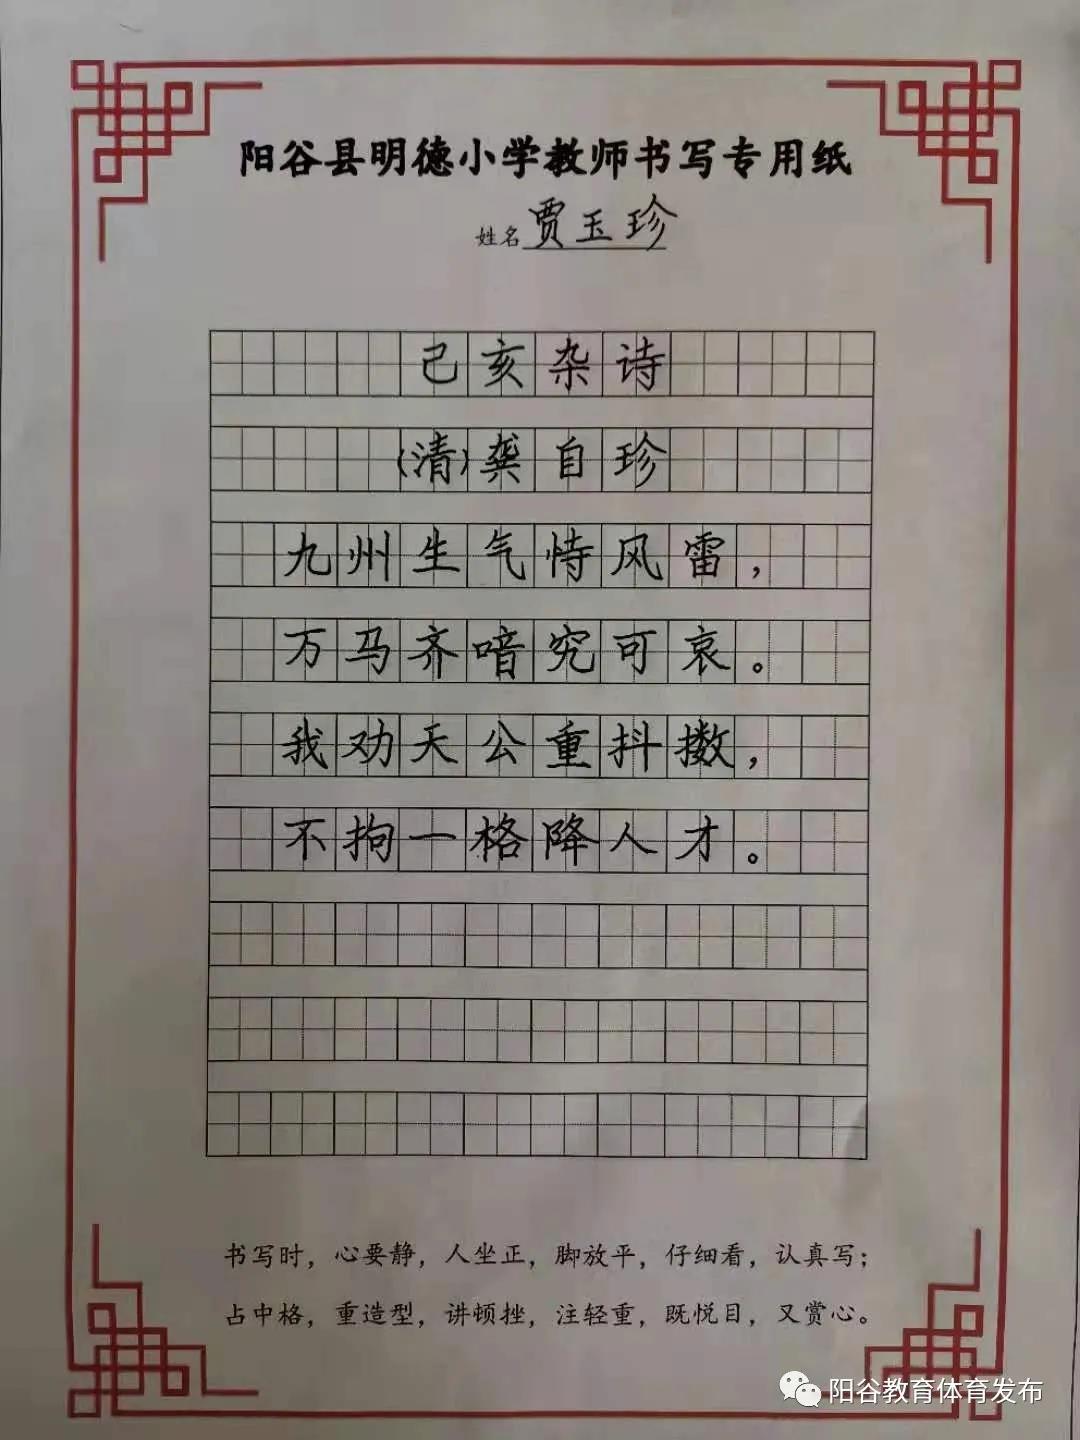 阳谷县明德小学教师书写专用纸
姓名 贾玉珍
己亥杂诗
(清)龚自珍
九州生气恃风雷，
万马齐喑究可哀。
我劝天公重抖擞，
不拘一格降人才。
书写时，心要静，人坐正，脚放平，仔细看，认真写；
占中格，重造型，讲顿挫，注轻重，既悦目，又赏心。
阳谷教育体育发布